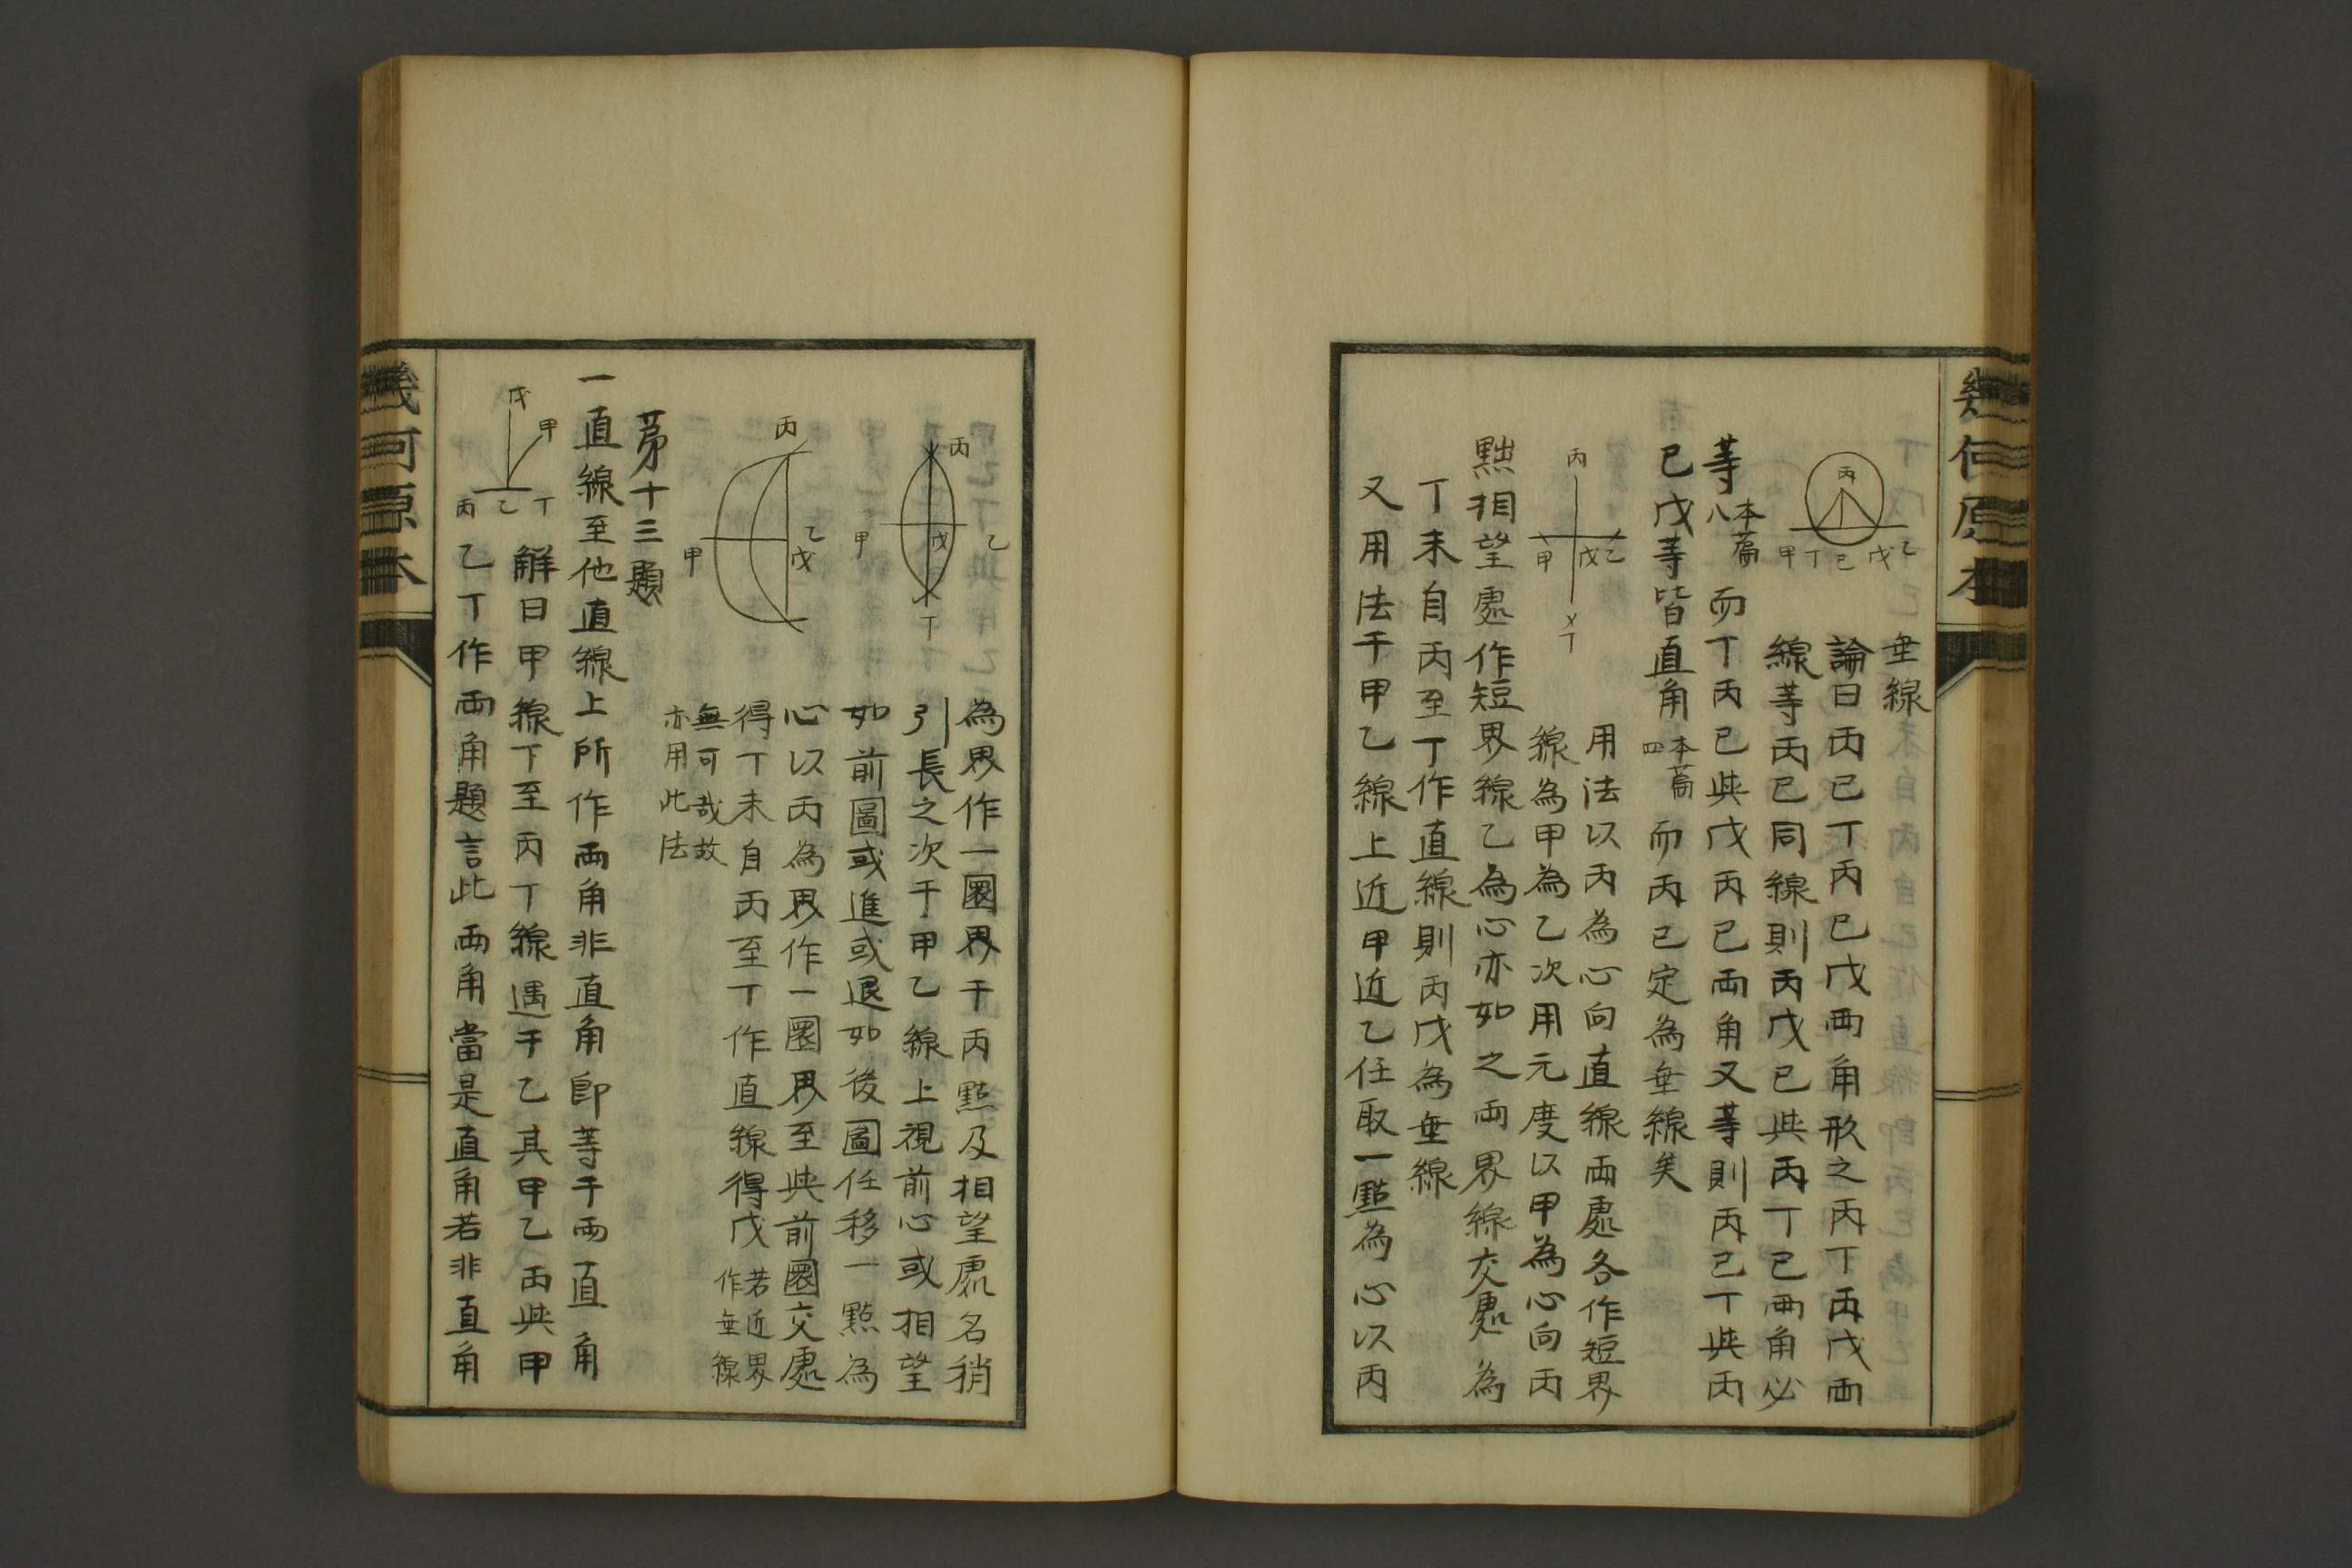 幾何原本
垂線
論曰丙己丁丙己戊兩角形之丙丁丙戊兩
線等丙己同線則丙戊己與丙丁己兩角必
等本篇八而丁丙己與戊丙己兩角又等則丙己丁與丙
己戊等皆直角本篇四而丙己定為垂線矣
丙
甲丁己戊乙
用法以丙為心向直線兩處各作短界
線為甲為乙次用元度以甲為心向丙
點相望處作短界線乙為心亦如之兩界線交處為
丁末自丙至丁作直線則丙戊為垂線
丙
甲戊乙
丁
又用法于甲乙線上近甲近乙任取一點為心以丙
為界作一圜界于丙點及相望處名稍
引長之次于甲乙線上視前心或相望
如前圖或進或退如後圖任移一點為
心以丙為界作一圜界至與前圜交處
得丁末自丙至丁作直線得戊若近界作垂線
無可哉故
亦用此法
丙
乙
戊
甲
丁
丙
乙
戊
甲
第十三題
一直線至他直線上所作兩角非直角即等于兩直角
解曰甲線下至丙丁線遇于乙其甲乙丙與甲
乙丁作兩角題言此兩角當是直角若非直角
戊
甲
丙乙丁
幾何原本